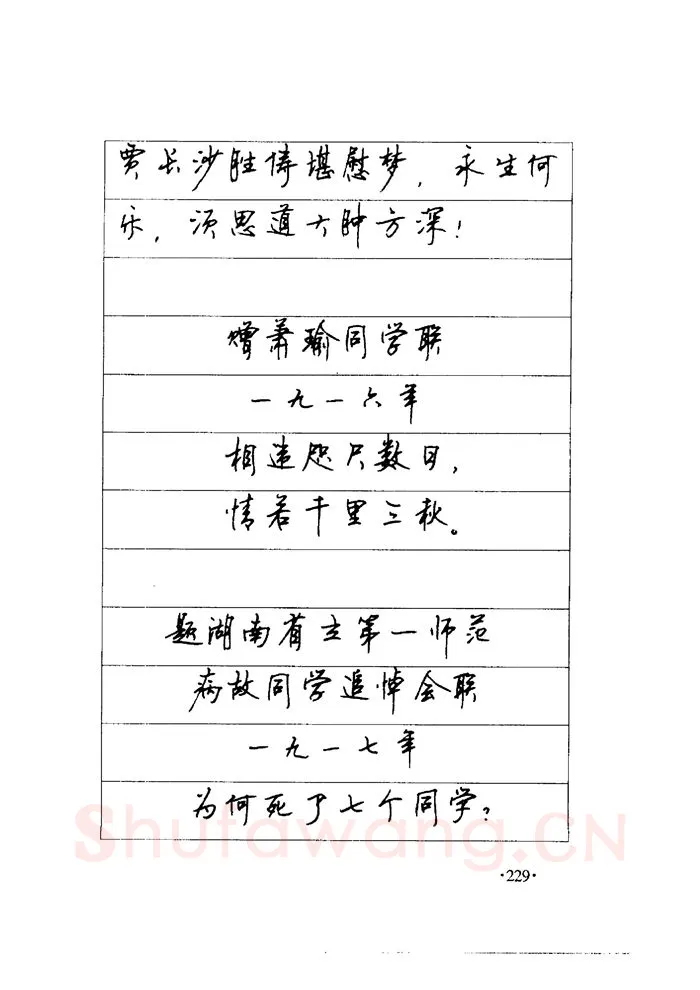 贾长沙胜俦堪慰梦，永生何
乐，须思道大肿方深！
赠萧瑜同学联
一九一六年
相违咫尺数日，
情若千里三秋。
题湖南省立第一师范
病故同学追悼会联
一九一七年
为何死了七个同学？
Shufawang.CN
·229·